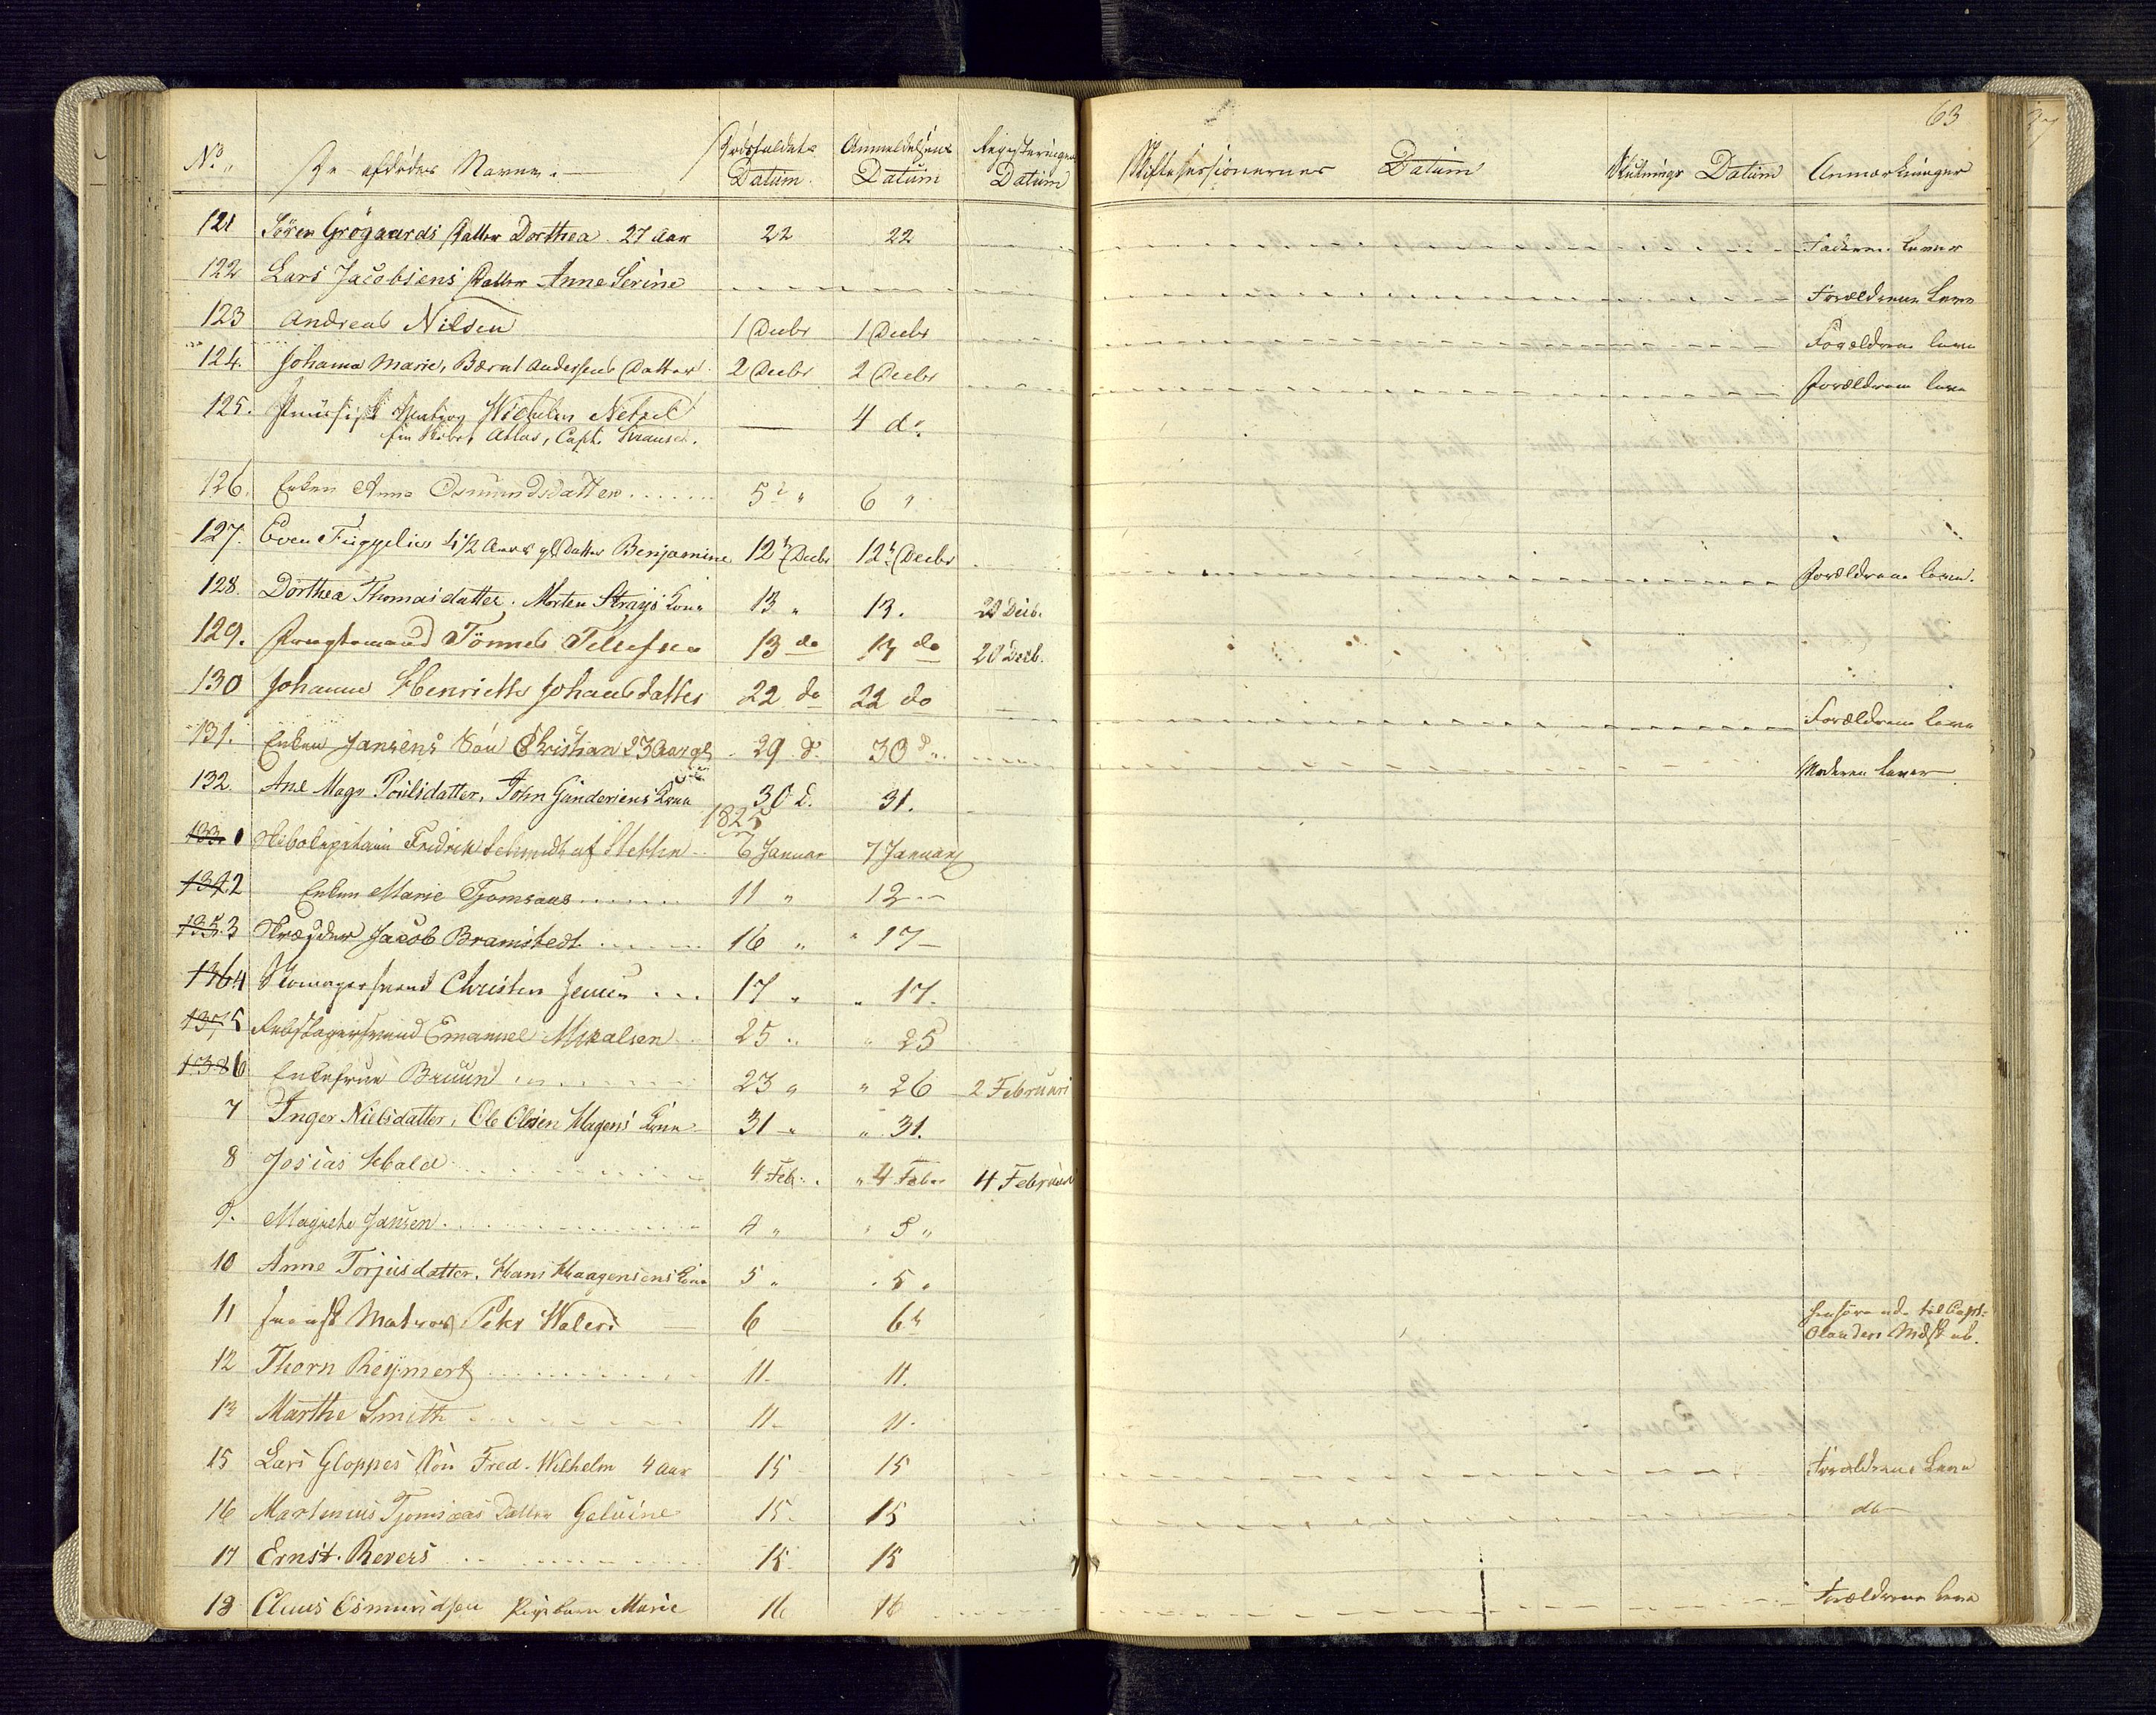 63
No. De afdødes Navne. Dødsfaldets Datum Anmeldelsens Datum Registeringens Datum Skiftesessionernes Datum Slutnings Datum Anmærkninger
121 Sören Grögaards Datter Dorthea. 27 Aar 22 22 Faderen lever
122 Lars Jacobsens Datter Anne Serine Forældrene leve
123 Andreas Nilsen 1 Decbr 1 Decbr Forældrene leve
124. Johanna Marie, Bærnt Andersens Datter 2 Decbr 2 Decbr Forældrene leve
125. Wilhelm Netzel 4 do
Atlas, Capt. Krause.
126. Enken Anna Osmundsdatter 5 " 6 "
127. Even Fuggelies 4 1/2 Aars gl. Datter Benjamine 12t Decbr 12t Decbr Forældrene leve.
128. Dorthea Thomasdatter. Morten Strays Kone 13 " 13. 20 Decb.
129. Tönnes Tellefsen 13 do 13 do 20 Decb.
130 Johanne Henriette Johansdatter 22 do 22 do Forældrene leve
131. Enken Jansens Sön Christian 23 Aar gl. 29 d. 30 d. Moderen lever
132 Ane Magr Poulsdatter, John Gundersens Kone 30 d. 31.
1825
133. 1 Skibskapitain Fridrik Schmidt af Stettin 6 Januar 7 Januar
134. 2 Enken Marie Tjomsaas 11 " 12
135. 3 Skrædder Jacob Bramstedt 16 " " 17
136 4 Skomagersvend Christen Jensen 17 " " 17.
137 5 Rebslagersvend Emanuel Mikalsen 25 " " 25
138 6 Enkefrue Bruun 23 " " 26 2 Februari
7 Inger Nielsdatter, Ole Olsen Hagens Kone 31 " " 31.
8 Josias Hald 4 Feb. " 4 Feb. 4 Februari
9. Magrete Jansen 4 " " 5 "
10 Anne Torjusdatter. Hans Haagensens Kone 5 " " 5 "
11 svensk Matros Peter 6 6t henhørende til Capt.
12 Thorn Reymert 11. 11.
13 Marthe Smith 11. 11.
15 Lars Gloppes Sön Fred. Wilhelm 4 Aar 15 15 Forældrene leve
16 Martinius Tjomsaas Datter 15. 15 do
17 Ernst Revers 15. 15
18 Claus Osmundsen Marie 16 16 Forældrene leve